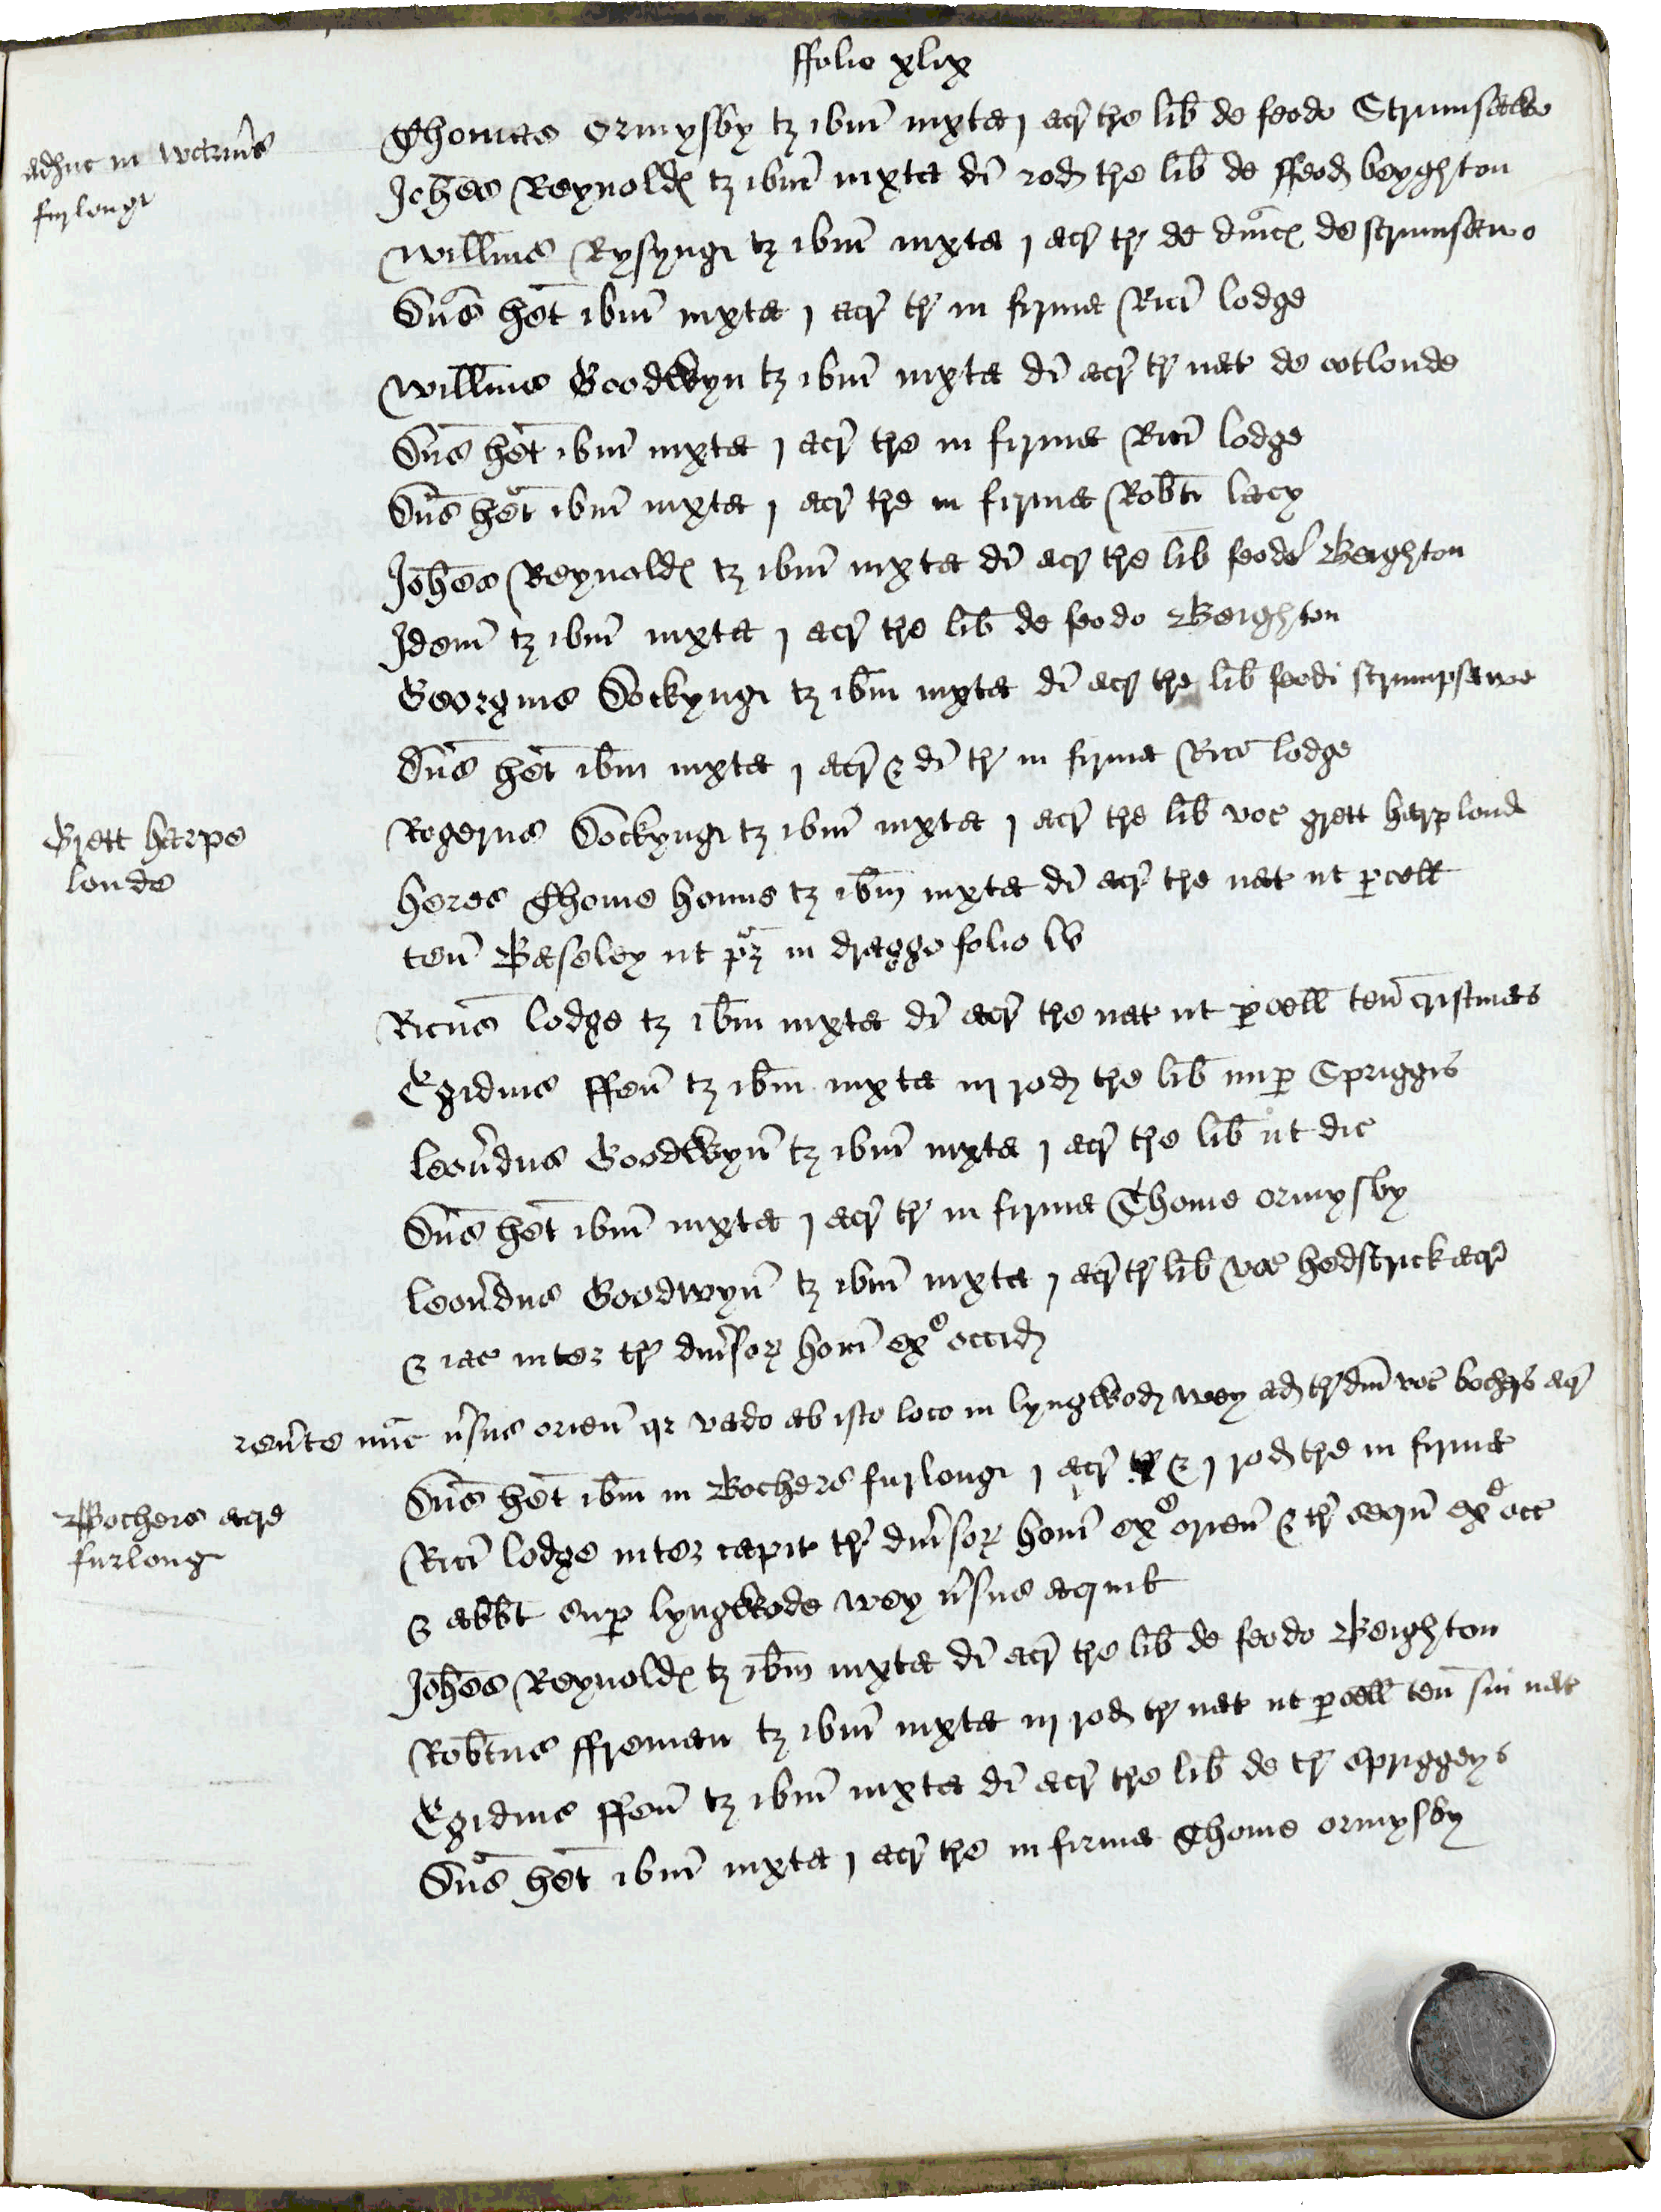 ffolio xlix
adhuc in Warins
furlong
Thomas Ormysby tz ibm iuxta j acr tre lib de feodo Strumsawe
Johes Reynold tz ibm iuxta di rod tre lib de ffeod beyghton
Willms Rysyng tz ibm iuxta j acr tr de dnic de strumsawe
Dns het ibm iuxta j acr tr in firma Rici lodge
Willms Goodwyn tz ibm iuxta di acr tr nat de cotlonde
Dns het ibm iuxta j acr tre in firma Rici lodge
Dns het ibm iuxta j acr tre in firma Robti lacy
Johes Reynold tz ibm iuxta di acr tre lib feod Beighton
Idem tz ibm iuxta j acr tre lib de feodo Beighton
Georgius Dockyng tz ibm iuxta di acr tre lib feodi strumpsawe
Dns het ibm iuxta j acr & di tr in firma Rici lodge
Grett harpe
londe
Rogerus Dockyng tz ibm iuxta j acr tre lib voc grett harplond
heres Thome honne tz ibm iuxta di acr tre nat ut pcell
ten Baseley ut pz in dragge folio lv
Ricus lodge tz ibm iuxta di acr tre nat ut pcell ten cristmas
Egidius ffen tz ibm iuxta iij rod tre lib nup Spriggis
leonardus Goodwyn tz ibm iuxta j acr tre lib ut dic
Dns het ibm iuxta j acr tr in firma Thome ormysby
leonardus Goodwyn tz ibm iuxta j acr tr lib voc hedstrick acr
& iac inter tr diversor hom ex occid
revrte nuc vsus orien qr vado ab isto loco in lyngwod wey ad tr dni voc bochers acr
Bochers acre
furlong
Dns het ibm in Bochers furlong j acr & j rod tre in firma
Rici lodge inter capit tr diversor hom ex orien & tr sequn ex occ
& abbt sup lyngwode wey vsus aquil
Johes Reynold tz ibm iuxta di acr tre lib de feodo Beighton
Robtus ffreman tz ibm iuxta iij rod tr nat ut pcell ten sui nat
Egidius ffen tz ibm iuxta di acr tre lib de tr spriggeys
Dns het ibm iuxta j acr tre in firma Thome ormysby